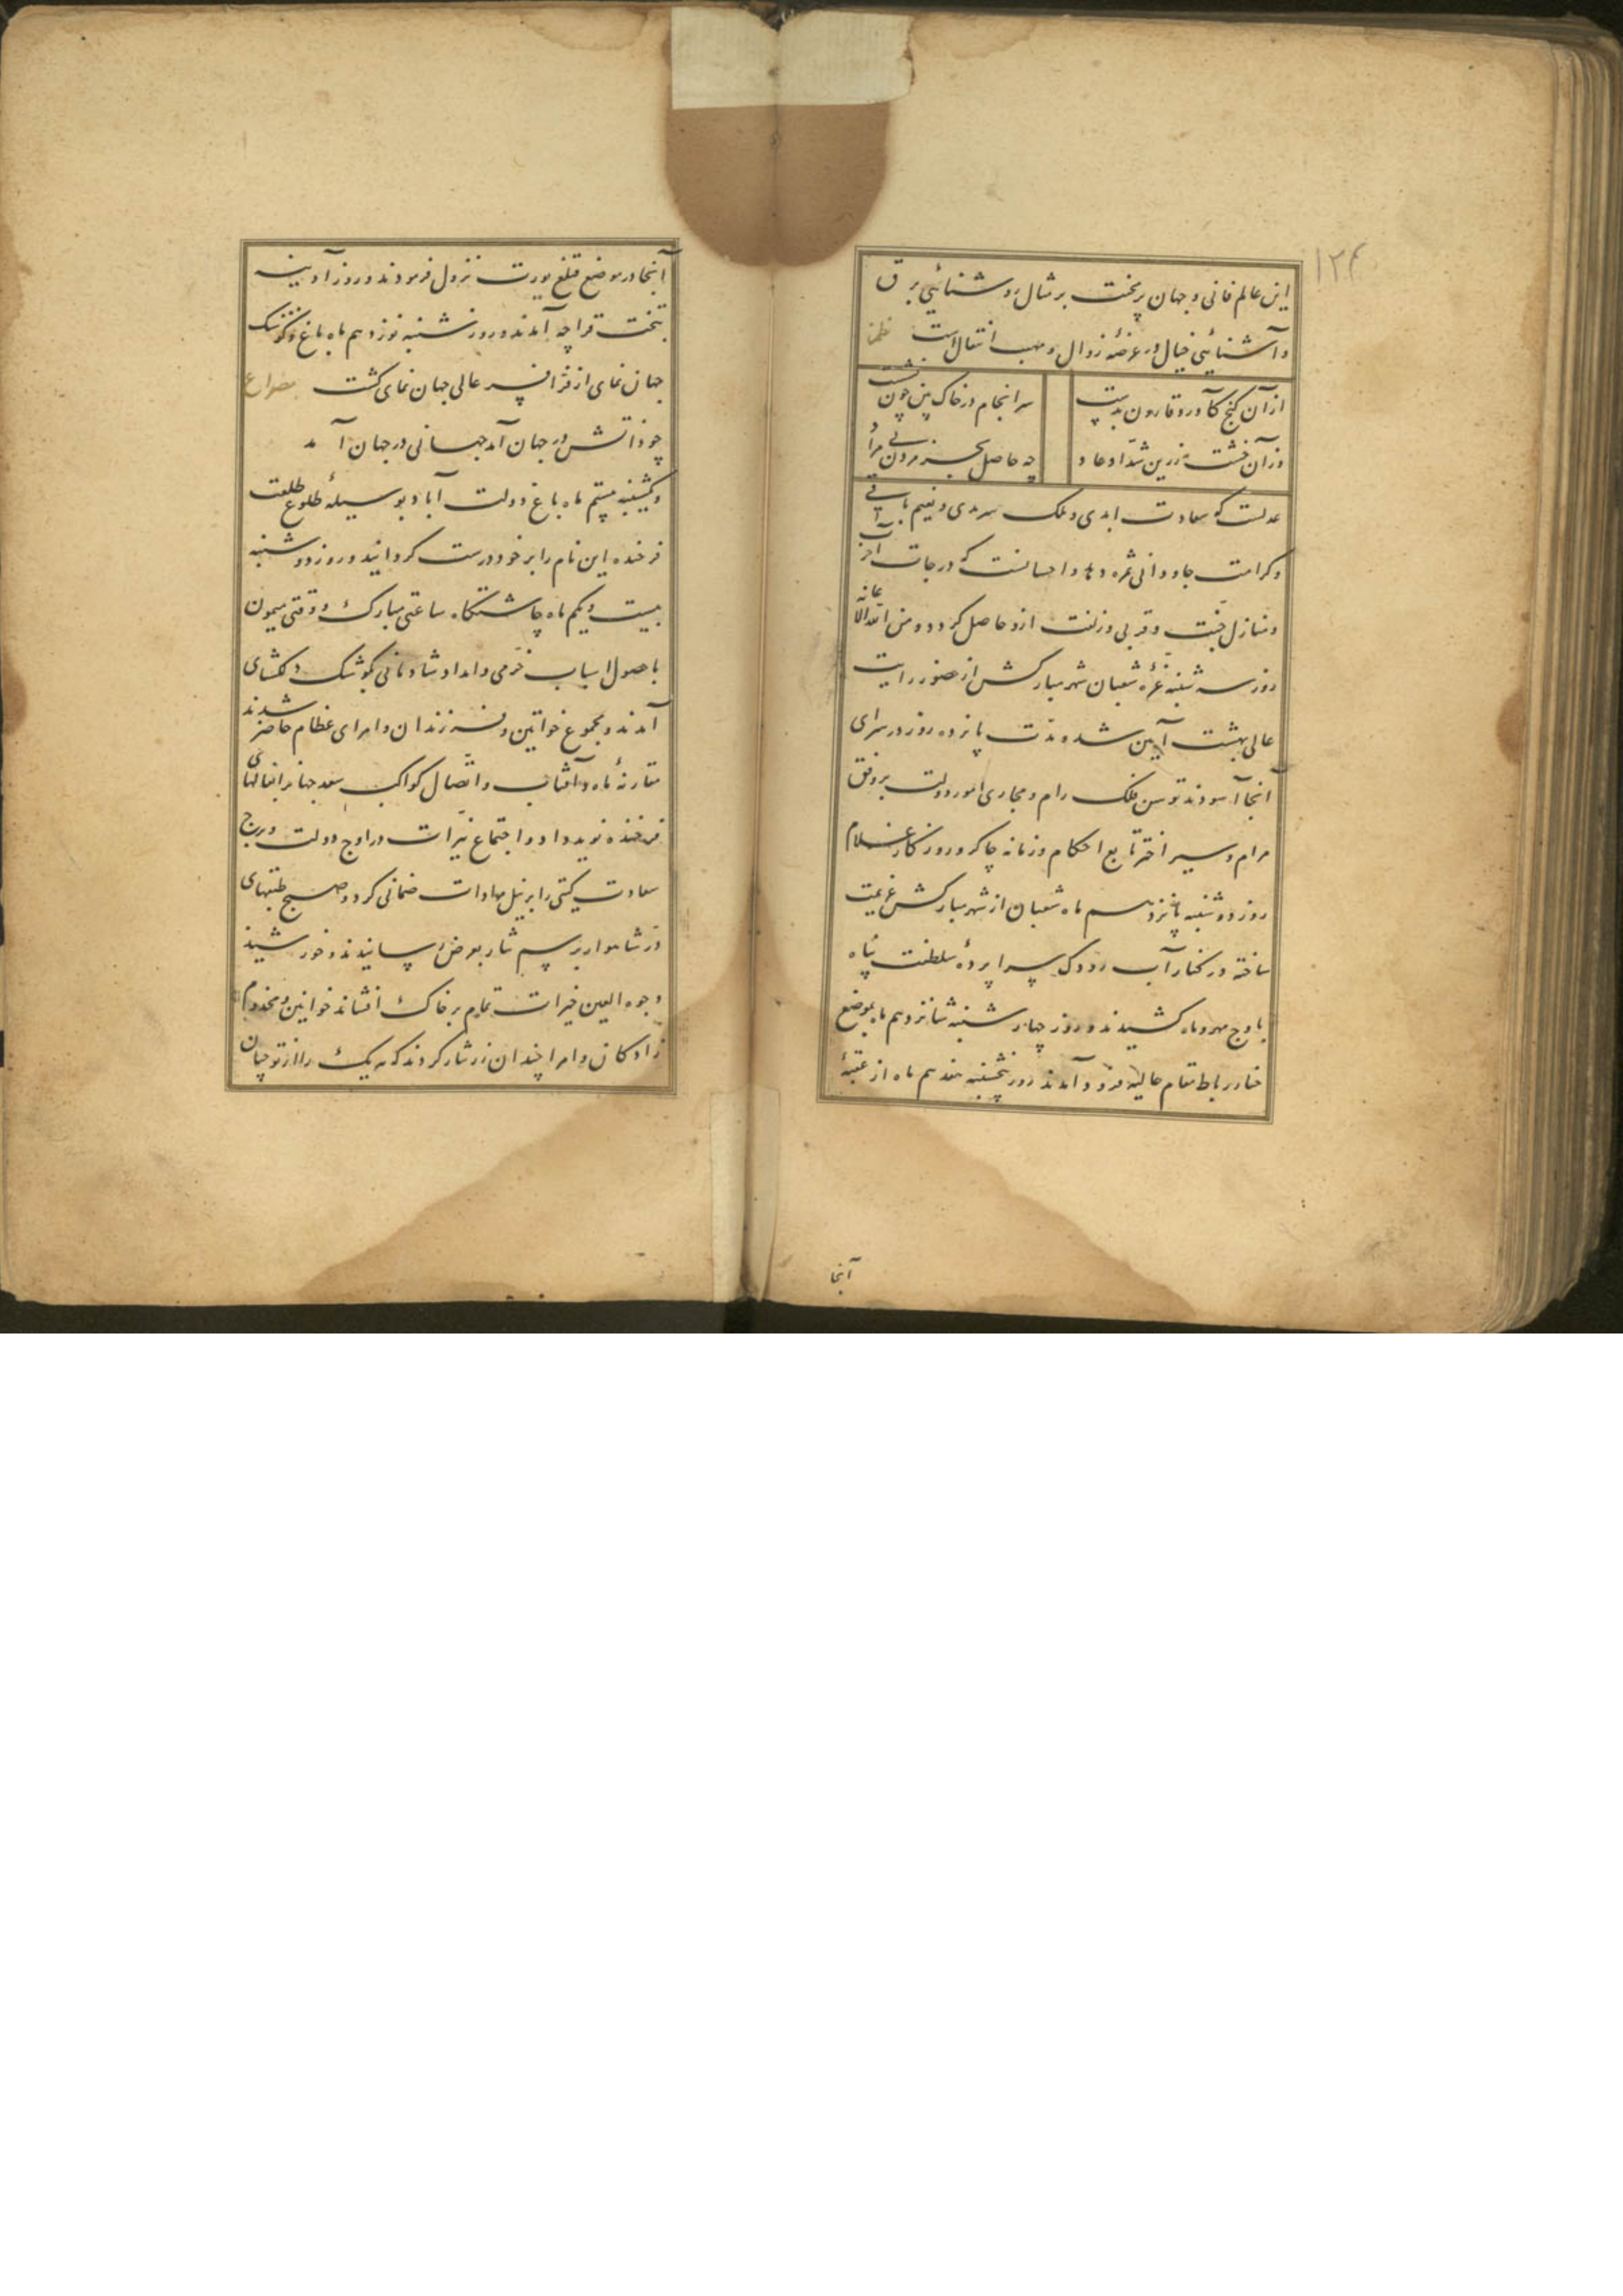 ۱۲۴
این عالم فانی و جهان پر محنت بر مثال روشنائی برق
و آشنائی خیال در عرضهٔ زوال و مهب انتقال است نظم
از آن گنج کآورد قارون بدست
سرانجام در خاک بین چون نشست
وزآن خشت زرین شداد عاد
چه حاصل بجز مردن نامراد
عدلست که سعادت ابدی و ملک سرمدی و نعیم باقی
و کرامت جاودانی ثمره دهد و احسانست که درجات آخرت
و منازل جنت و قربی و زلفت ازو حاصل گردد و من الله الاعانه
روز سه شنبه غرهٔ شعبان شهر مبارکش از حضور رایت
عالی بهشت آیین شد و مدت پانزده روز در سرای
آنجا آسودند توسن فلک رام و مجاری امور دولت بر وفق
مرام و سیر اختر تابع احکام و زمانه چاکر و روزگار غلام
روز دوشنبه پانزدهم ماه شعبان از شهر مبارکش عزیمت
ساخته در کنار آب رودک سراپردهٔ سلطنت پناه
باوج مهر و ماه کشیدند و روز چهارشنبه شانزدهم ماه بموضع
رباط مقام عالیه فرود آمدند روز پنجشنبه هفدهم ماه از عقبهٔ
آنجا
آنجا در موضع قتلغ یورت نزول فرمودند و روز آدینه
بتخت قراچه آمدند و روز شنبه نوزدهم ماه باغ و کوشک
جهان نمای از فر افسر عالی جهان نمای گشت مصراع
چو ذاتش در جهان آمد جهانی در جهان آمد
و یکشنبه بیستم ماه باغ دولت آباد بوسیلهٔ طلوع طلعت
فرخنده این نام را بر خود درست گردانید و روز دوشنبه
بیست و یکم ماه چاشتگاه ساعتی مبارک و وقتی میمون
با حصول اسباب خرمی و امداد شادمانی بکوشک دلگشای
آمدند و مجموع خواتین و فرزندان و امرای عظام حاضر شدند
مقارنهٔ ماه و آفتاب و اتصال کواکب سعد جهانرا بفالهای
فرخنده نوید داد و اجتماع نیرات در اوج دولت و برج
سعادت گیتی را بر نیل مرادات ضمانی کرد و صبح طبقهای
در شاهوار برسم نثار بعرض رسانیدند و خورشید
وجوه العین خیرات تمام بر خاک افشاند خواتین و مخدوم
زادگان و امرا چندان زر نثار کردند که هر یک را از توجیان